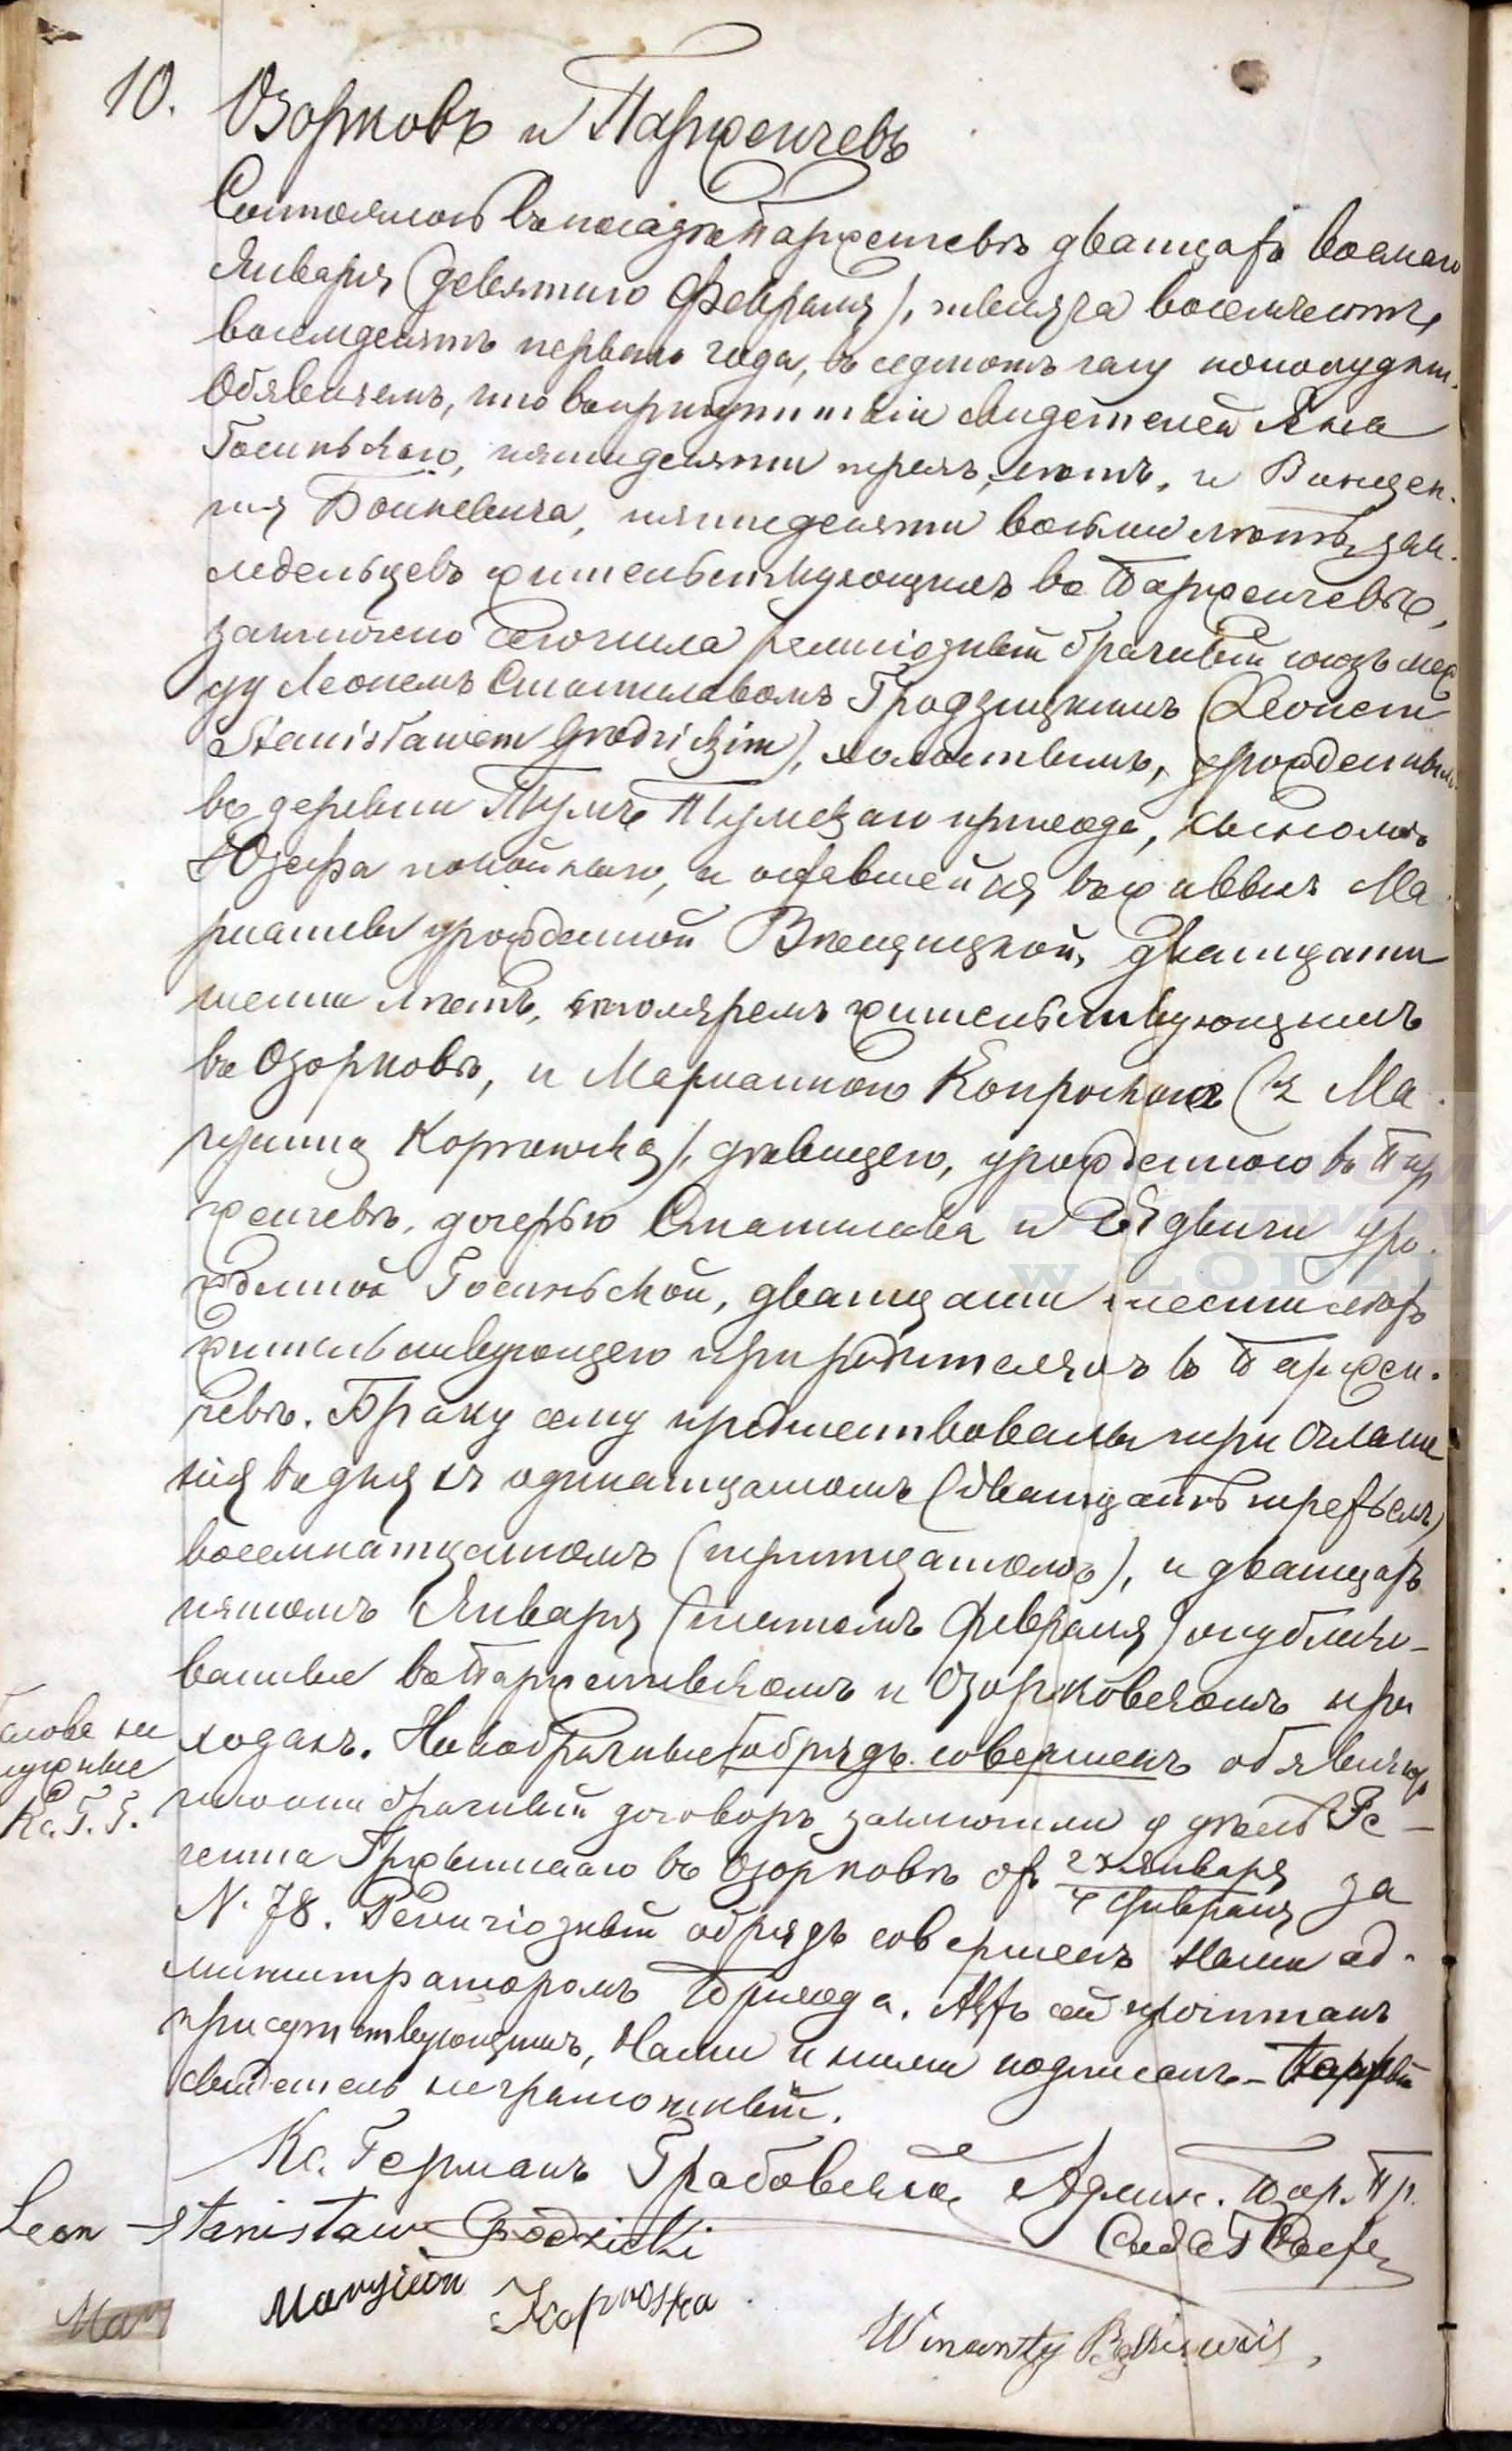 10. Озорковъ и Парженчевъ
Состоялось въ посадѣ Парженчевѣ двадцать восьмаго
Января (девятаго Февраля), тысяча восемьсотъ
восемдесятъ перваго года, въ седмомъ часу пополудни.
Объявляемъ, что въ присутствіи свидетелей Яна
Госиньскаго, пятидесяти трехъ лѣтъ, и Винцен-
тія Боиневича, пятидесяти восьми лѣтъ, зем-
ледельцевъ жительствующихъ въ Парженчевѣ,
заключено сего числа религіозный брачный союзъ меж
ду Леонемъ Станиславомъ Гродзицкимъ (Leonem
Stanisławem Grodzickim), холостымъ, урожденнымъ
въ деревни Тумѣ Тумскаго прихода, сыномъ
Юзефа покойнаго, и оставшейся въ живыхъ Ма
рианны урожденной Вкенцицкой, двадцати
шести лѣтъ, столяремъ жительствующимъ
въ Озорковѣ, и Марианною Копроскою (z Ma
ryanną Koprowską), дѣвицею, урожденною въ Пар
женчевѣ, дочерью Станислава и Ядвиги уро-
жденной Госиньской, двадцати шести лѣтъ
жительствующею при родителяхъ въ Паржен-
чевѣ. Браку сему предшествовали три оглаше
нія въ дняхъ одинадцатомъ (двадцать третьемъ)
восемнадцатомъ (тритцатомъ), и двадцать
пятомъ Января (шестомъ Февраля) опублико-
ванные въ Парженчевскомъ и Озорковскомъ при
ходахъ. Новобрачные обрядъ совершенъ объявляютъ
что они брачный договоръ заключили у дѣлъ Ре-
гента Гржымскаго въ Озорковѣ отъ 23 Января / 4 Февраля за
N. 78. Религіозный обрядъ совершенъ Нами ад-
министраторомъ Прихода. Актъ сей прочитанъ
присутствующимъ, Нами и ними подписанъ – Первый
свидетель неграмотный.
слова не
нужные
Кс. Г. Г.
Кс. Германъ Грабовскій Админ. Пар. Пр.
Leon Stanisław Grodzicki
Maryjion Koproska
Mar
Winenty